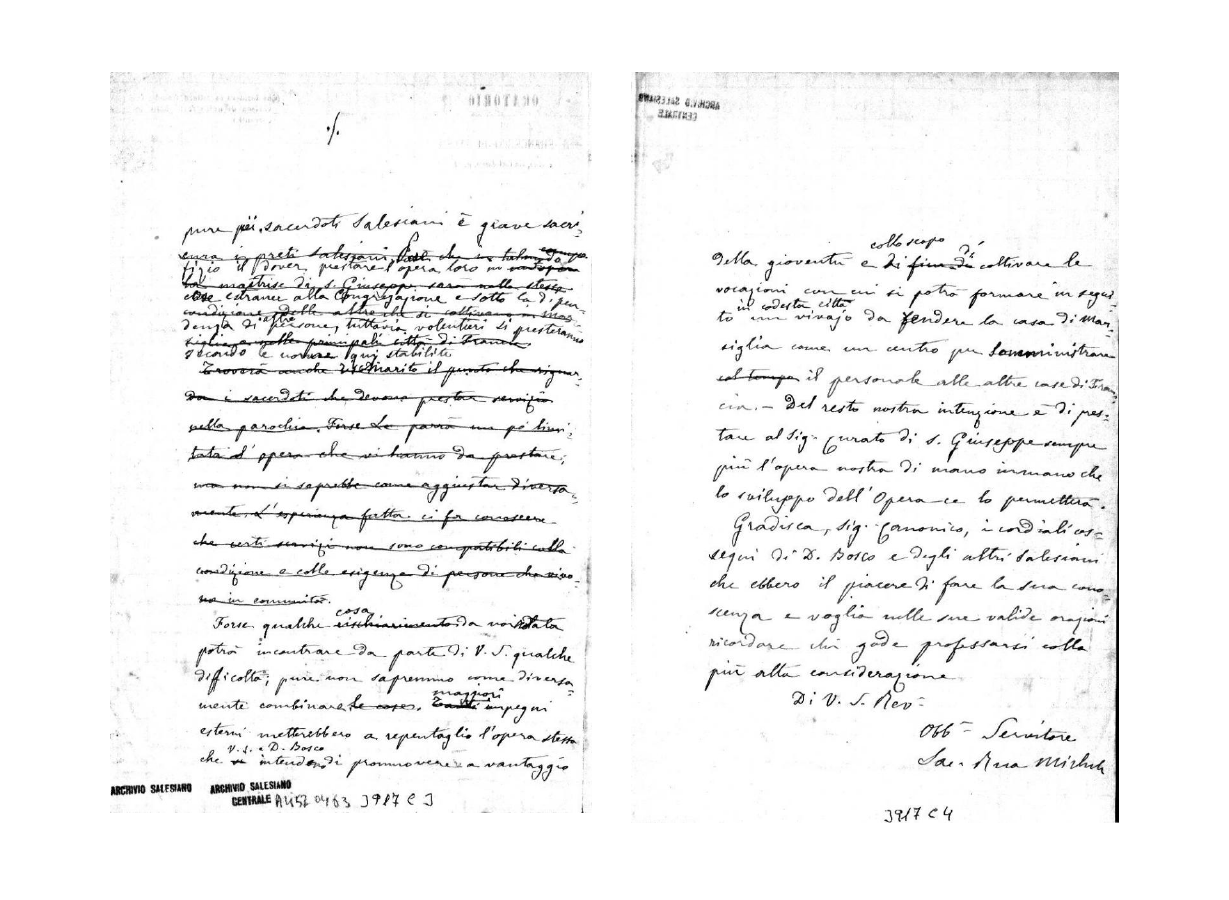 ./.
pure pei sacerdoti Salesiani è grave sacri-
cura i preti Salesiani che in
fizio il dover prestare l'opera loro in
maetrise di S. Giuseppe sarà nelle stesse
estranee alla Congregazione e sotto la dipen-
condizione delle altre che si coltivano in Mar-
denza di altre persone, tuttavia volentieri si presteranno
siglia e nelle principali città di Francia
secondo le norme qui stabilite
Troverà anche il punto che riguar-
da i sacerdoti che devono prestar servizio
nella parochia. Forse Le parrà un pò limi-
tata l'opera che vi hanno da prestare,
ma non si saprebbe come aggiustar diversa-
mente. L'esperienza fatta ci fa conoscere
che certi servizi non sono compatibili colla
condizione e colle esigenze di persone che vivo-
no in comunità.
cosa
Forse qualche rischiarimento da noi data
potrà incontrare da parte di V. S. qualche
difficoltà; pure non sapremmo come diversa-
maggiori
mente combinare le cose. Tanti impegni
esterni metterebbero a repentaglio l'opera stessa
V. S. e D. Bosco
che intendono di promuovere a vantaggio
ARCHIVIO SALESIANO
ARCHIVIO SALESIANO
CENTRALE A4570463 3917 C 3
ARCHIVIO SALESIANO
CENTRALE
collo scopo di
della gioventù e di fine di coltivare le
vocazioni con cui si potrà formare in segui-
in codesta città
to un vivajo da rendere la casa di Mar-
siglia come un centro per somministrare
col tempo il personale alle altre case di Fran-
cia. - Del resto nostra intenzione è di pres-
tare al Sig. Curato di S. Giuseppe sempre
più l'opera nostra di mano in mano che
lo sviluppo dell'Opera ce lo permetterà.
Gradisca, Sig. Canonico, i cordiali os-
sequi di D. Bosco e degli altri Salesiani
che ebbero il piacere di fare la sua cono-
scenza e voglia nelle sue valide orazioni
ricordare chi gode professarsi colla
più alta considerazione
Di V. S. Rev.
Obb. Servitore
Sac. Rua Michele
3917 C 4